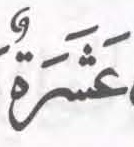 عَشَرَةٌ